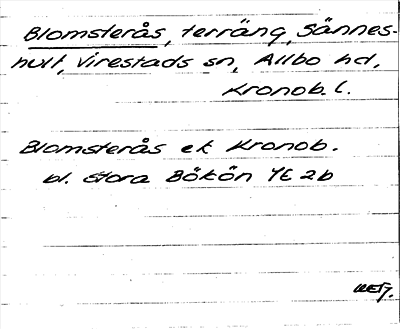 Blomsterås, terräng, Sännes-
hult, Virestads sn, Allbo hd,
Kronob. l.
Blomsterås ek Kronob.
bl. Stora Bökön 4E 2b